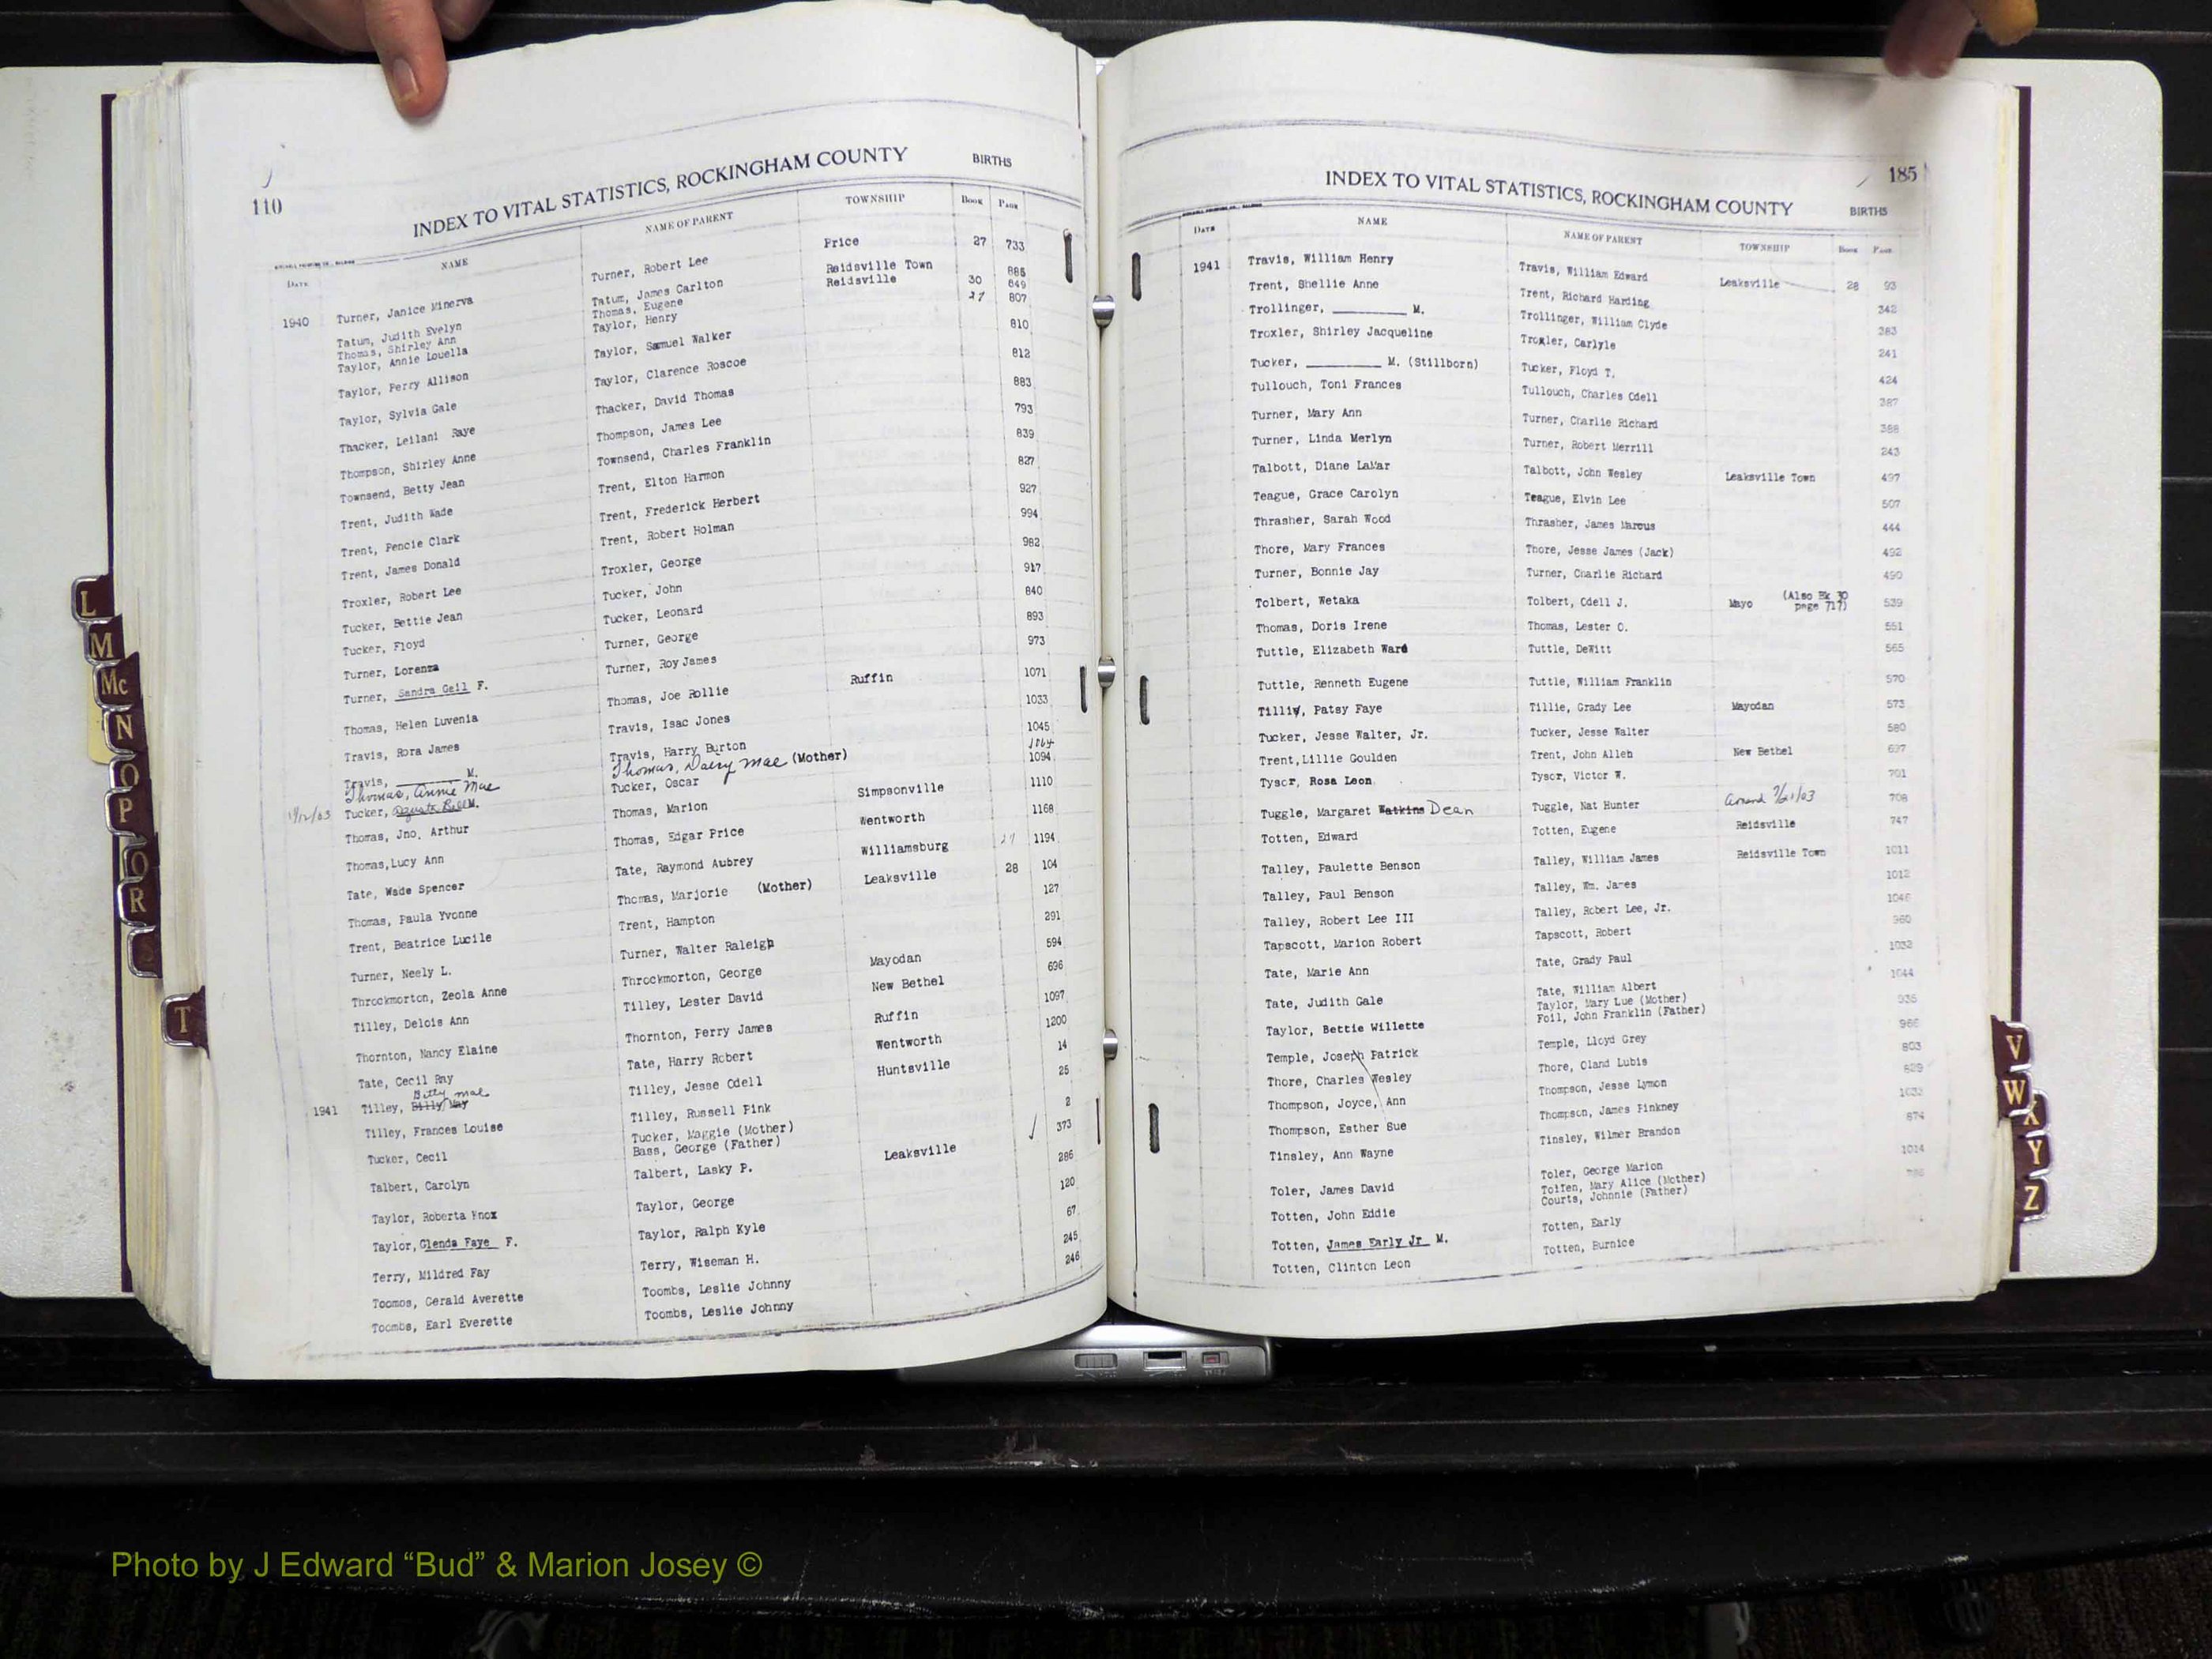 110
INDEX TO VITAL STATISTICS, ROCKINGHAM COUNTY BIRTHS
DATE NAME NAME OF PARENT TOWNSHIP BOOK PAGE
1940 Turner, Janice Minerva Turner, Robert Lee Price 27 733
Tatum, Judith Evelyn Tatum, James Carlton Reidsville Town 886
Thomas, Shirley Ann Thomas, Eugene Reidsville 30 649
Taylor, Annie Louella Taylor, Henry 27 807
Taylor, Perry Allison Taylor, Samuel Walker 810
Taylor, Sylvia Gale Taylor, Clarence Roscoe 812
Thacker, Leilani Raye Thacker, David Thomas 883
Thompson, Shirley Anne Thompson, James Lee 793
Townsend, Betty Jean Townsend, Charles Franklin 839
Trent, Judith Wade Trent, Elton Harmon 827
Trent, Pencie Clark Trent, Frederick Herbert 927
Trent, James Donald Trent, Robert Holman 994
Troxler, Robert Lee Troxler, George 982
Tucker, Bettie Jean Tucker, John 917
Tucker, Floyd Tucker, Leonard 840
Turner, Lorenza Turner, George 893
Turner, Sandra Gail F. Turner, Roy James 973
Thomas, Helen Luvenia Thomas, Joe Rollie Ruffin 1071
Travis, Rora James Travis, Isac Jones 1033
Travis, ________ M. Travis, Harry Burton 1045
Thomas, Annie Mae Thomas, Daisy Mae (Mother)
Tucker, M. Tucker, Oscar 1094
Thomas, Jno. Arthur Thomas, Marion Simpsonville 1110
Thomas, Lucy Ann Thomas, Edgar Price Wentworth 1168
Tate, Wade Spencer Tate, Raymond Aubrey Williamsburg 27 1194
Thomas, Paula Yvonne Thomas, Marjorie (Mother) Leaksville 28 104
Trent, Beatrice Lucile Trent, Hampton 127
Turner, Neely L. Turner, Walter Raleigh 291
Throckmorton, Zeola Anne Throckmorton, George Mayodan 594
Tilley, Delois Ann Tilley, Lester David New Bethel 696
Thornton, Nancy Elaine Thornton, Perry James Ruffin 1097
Tate, Cecil Ray Tate, Harry Robert Wentworth 1200
Betty Mae
1941 Tilley, Billy May Tilley, Jesse Odell Huntsville 14
Tilley, Frances Louise Tilley, Russell Pink 25
Tucker, Cecil Tucker, Maggie (Mother) 2
Bass, George (Father)
Talbert, Carolyn Talbert, Lasky P. Leaksville 373
Taylor, Roberta Knox Taylor, George 286
Taylor, Glenda Faye F. Taylor, Ralph Kyle 120
Terry, Mildred Fay Terry, Wiseman H. 67
Toomos, Gerald Averette Toombs, Leslie Johnny 245
Toombs, Earl Everette Toombs, Leslie Johnny 246
185
INDEX TO VITAL STATISTICS, ROCKINGHAM COUNTY BIRTHS
DATE NAME NAME OF PARENT TOWNSHIP BOOK PAGE
1941 Travis, William Henry Travis, William Edward Leaksville 28 93
Trent, Shellie Anne Trent, Richard Harding 342
Trollinger, ________ M. Trollinger, William Clyde 283
Troxler, Shirley Jacqueline Troxler, Carlyle 241
Tucker, ________ M. (Stillborn) Tucker, Floyd T. 424
Tullouch, Toni Frances Tullouch, Charles Odell 387
Turner, Mary Ann Turner, Charlie Richard 388
Turner, Linda Merlyn Turner, Robert Merrill 243
Talbott, Diane LaMar Talbott, John Wesley Leaksville Town 497
Teague, Grace Carolyn Teague, Elvin Lee 507
Thrasher, Sarah Wood Thrasher, James Marcus 444
Thore, Mary Frances Thore, Jesse James (Jack) 492
Turner, Bonnie Jay Turner, Charlie Richard 490
Tolbert, Wetaka Tolbert, Odell J. Mayo (Also Bk 30 page 717) 539
Thomas, Doris Irene Thomas, Lester O. 551
Tuttle, Elizabeth Ward Tuttle, DeWitt 565
Tuttle, Renneth Eugene Tuttle, William Franklin 570
Tilliy, Patsy Faye Tillie, Grady Lee Mayodan 573
Tucker, Jesse Walter, Jr. Tucker, Jesse Walter 580
Trent, Lillie Goulden Trent, John Allen New Bethel 627
Tysor, Rosa Leon Tysor, Victor W. 701
Tuggle, Margaret Watkins Dean Tuggle, Nat Hunter 708
Totten, Edward Totten, Eugene Reidsville 747
Talley, Paulette Benson Talley, William James Reidsville Town 1011
Talley, Paul Benson Talley, Wm. James 1012
Talley, Robert Lee III Talley, Robert Lee, Jr. 1046
Tapscott, Marion Robert Tapscott, Robert 960
Tate, Marie Ann Tate, Grady Paul 1032
Tate, Judith Gale Tate, William Albert 1044
Taylor, Bettie Willette Taylor, Mary Lue (Mother) 935
Foil, John Franklin (Father)
Temple, Joseph Patrick Temple, Lloyd Grey 966
Thore, Charles Wesley Thore, Oland Lubis 803
Thompson, Joyce, Ann Thompson, Jesse Lymon 829
Thompson, Esther Sue Thompson, James Pinkney 1033
Tinsley, Ann Wayne Tinsley, Wilmer Brandon 874
Toler, James David Toler, George Marion 1014
Totten, John Eddie Totten, Mary Alice (Mother)
Courts, Johnnie (Father)
Totten, James Early Jr M. Totten, Early
Totten, Clinton Leon Totten, Burnice
L
M
Mc
N
O
P
R
T
V
W
X
Y
Z
Photo by J Edward “Bud” & Marion Josey ©